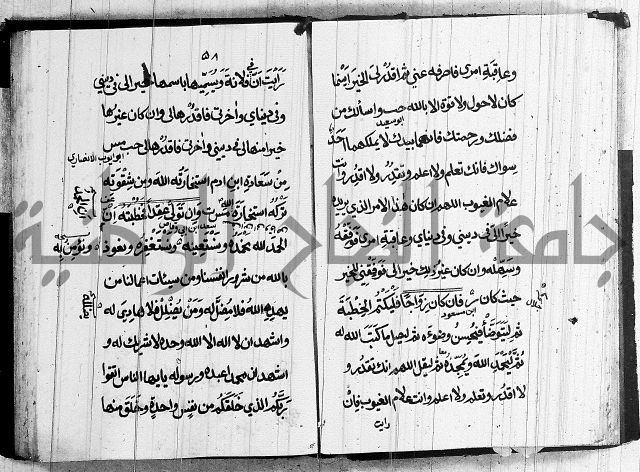 وعاقبة امري فاصرفه عني ثم اقدر لي الخير اينما
كان لا حول ولا قوة الا بالله حب واسألك من
ابو سعيد
فضلك ورحمتك فانهما بيدك لا يملكهما احد
سواك فانك تعلم ولا اعلم وتقدر ولا اقدر وانت
علام الغيوب اللهم ان كان هذا الامر الذي يريده
خيرا لي في ديني وفي دنياي وعاقبة امري فوفقه
وسهله وان كان غير ذلك خيرا لي فوفقني للخير
حيث كان ر فان كان زواجا فليكتم الخطبة
ابن مسعود
ثم ليتوضأ فيحسن وضوءه ثم ليصل ما كتب الله له
ثم ليحمد الله ويمجده ثم ليقل اللهم انك تقدر و
لا اقدر وتعلم ولا اعلم وانت علام الغيوب فان
رايت
٥٨
رأيت ان في فلانة ويسميها باسمها خيرا لي في ديني
وفي دنياي واخرتي فاقدرها لي وان كان غيرها
خيرا منها لي في ديني واخرتي فاقدرها لي حب مس
ابو ايوب الانصاري
من سعادة ابن ادم استخارته الله ومن شقوته
تركه استخارة الله وان تولى عقدا فخطبته ان
الحمد لله نحمده ونستعينه ونستغفره ونعوذ
بالله من شرور انفسنا ومن سيئات اعمالنا من
يهده الله فلا مضل له ومن يضلل فلا هادي له
واشهد ان لا اله الا الله وحده لا شريك له و
اشهد ان محمدا عبده ورسوله يايها الناس اتقوا
ربكم الذي خلقكم من نفس واحدة وخلق منها
جامعة النجاح الوطنية